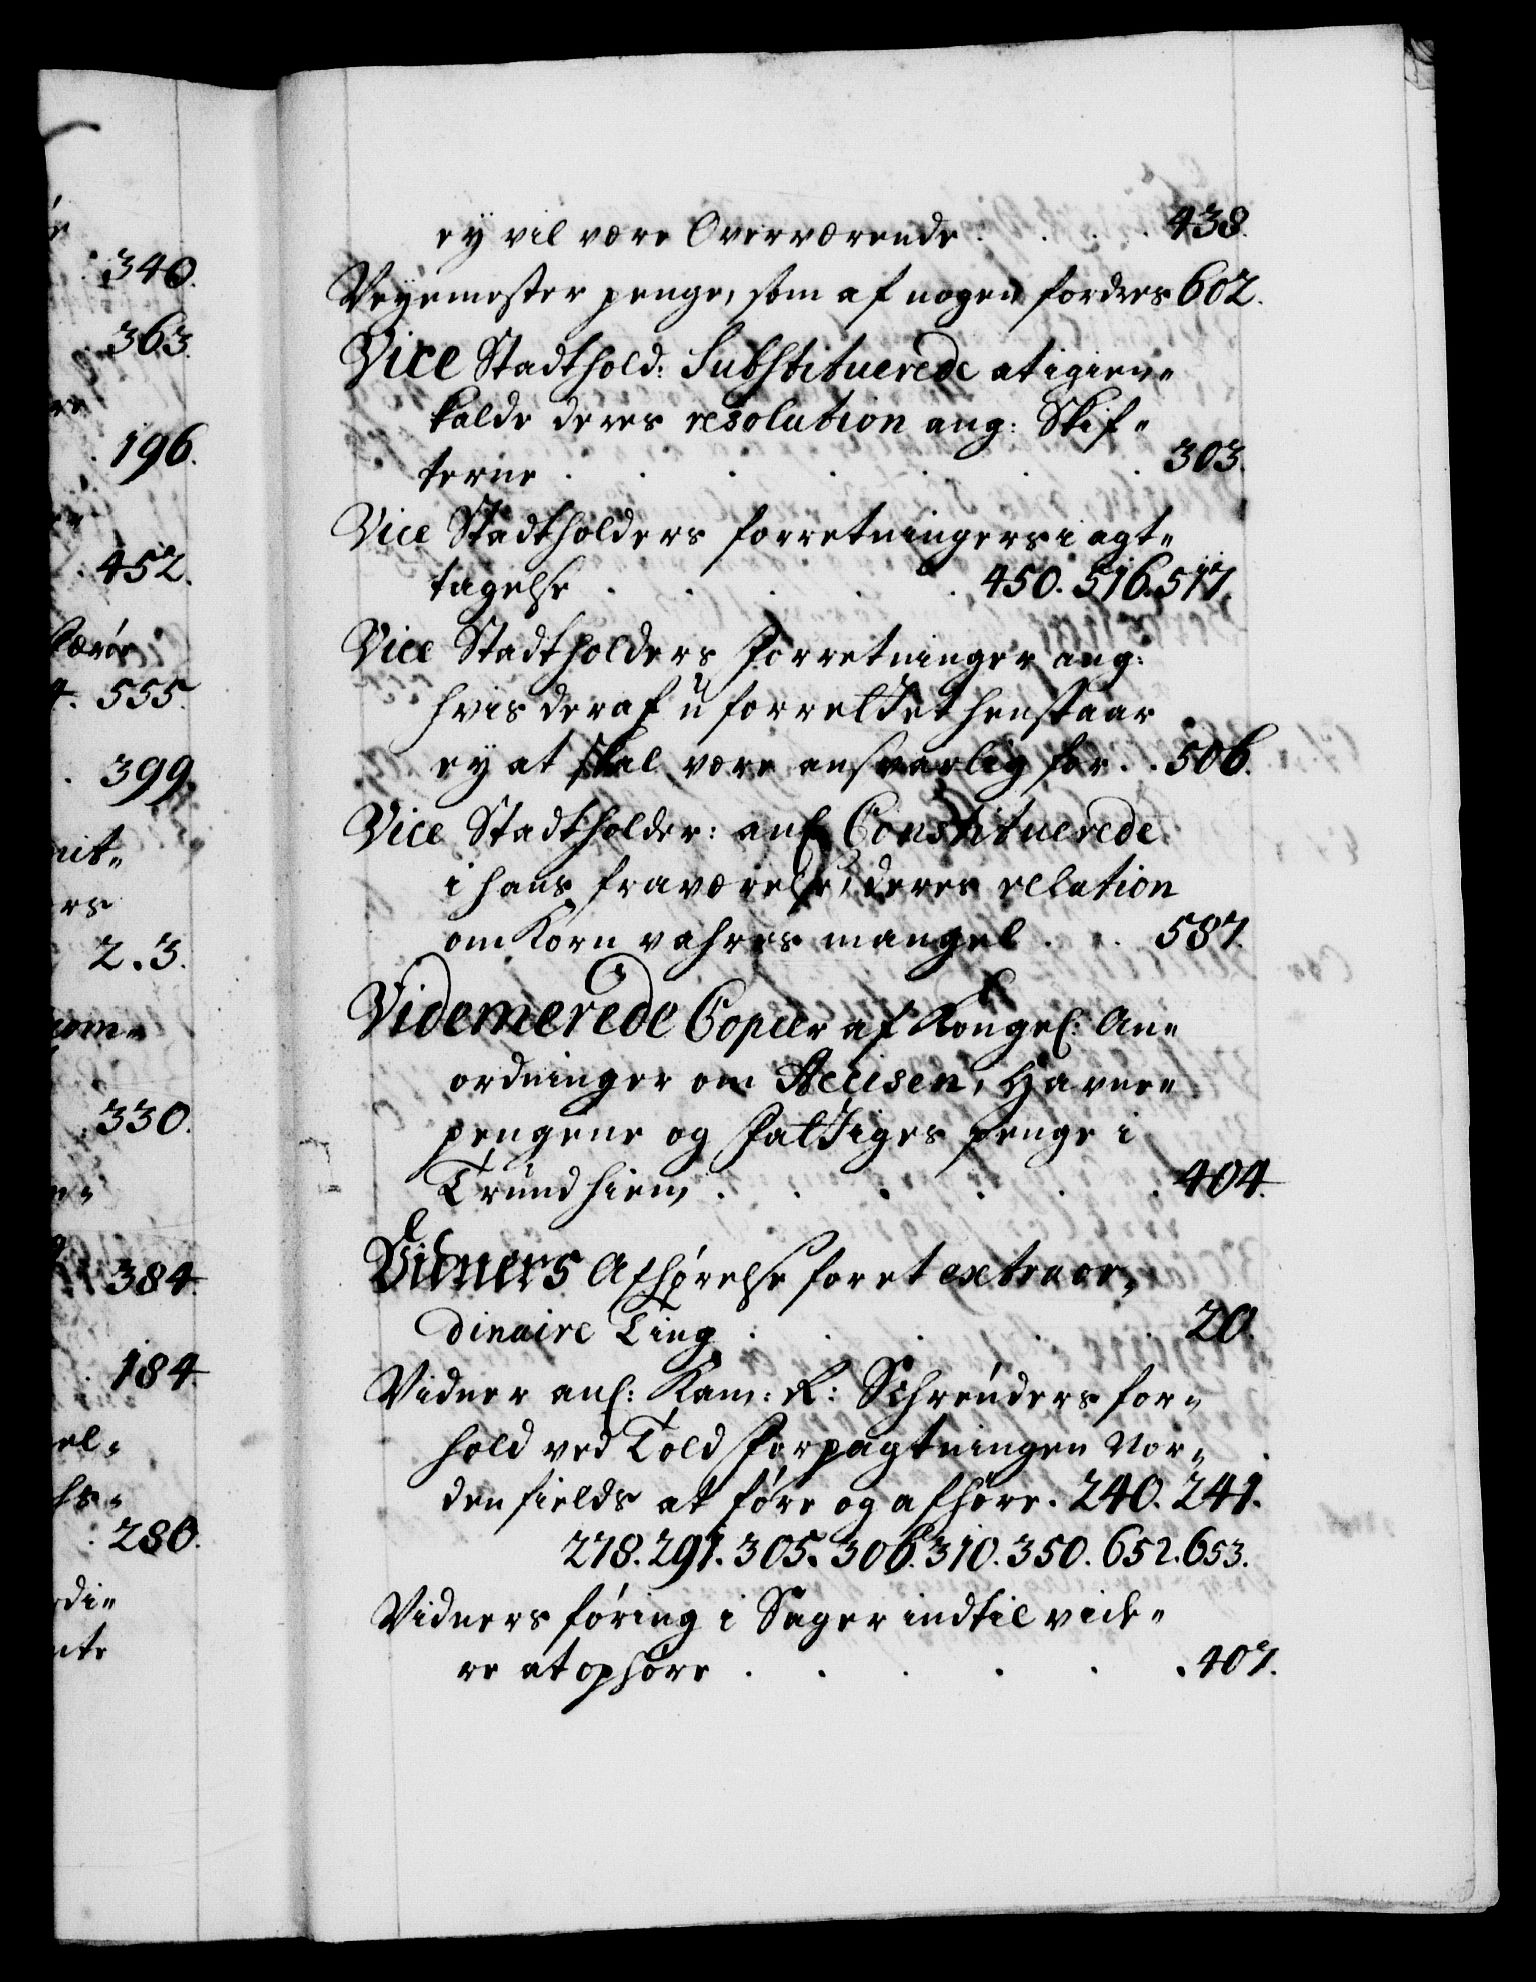 340.
363.
196.
452.
555.
399.
2.3.
330.
384.
184.
280.
ey vil være Overværende . . . . 438.
Veyemester penge, som af nogen fordres 602.
Vice Stadthold: Substituerede at igien-
kalde deres resolution ang: Skif-
terne . . . . . . 303.
Vice Stadtholders forretningers i agt-
tagelse . . . . . 450. 516. 517.
Vice Stadtholders forretninger ang:
hvis deraf uforrettet henstaar
ey at skal være ansvarlig for . . 506.
Vice Stadtholder: anl: Constituerede
i hans fraværelse, deres relation
om Korn vahres mangel . . 587.
Videmerede Copier af Kongel: An-
ordninger om Accisen, Havne-
pengene og Fattiges penge i
Trundhiem . . . . . . 404.
Vidners Afhørelse for et extraor-
dinaire Ting . . . . . 20.
Vidner anl: Kam: R: Schreuders for-
hold ved Told Forpagtningen Nor-
denfields at føre og afhøre. 240. 241.
278. 291. 305. 306. 310. 350. 652. 653.
Vidners føring i Sager indtil vide-
re at ophøre . . . . . . 407.